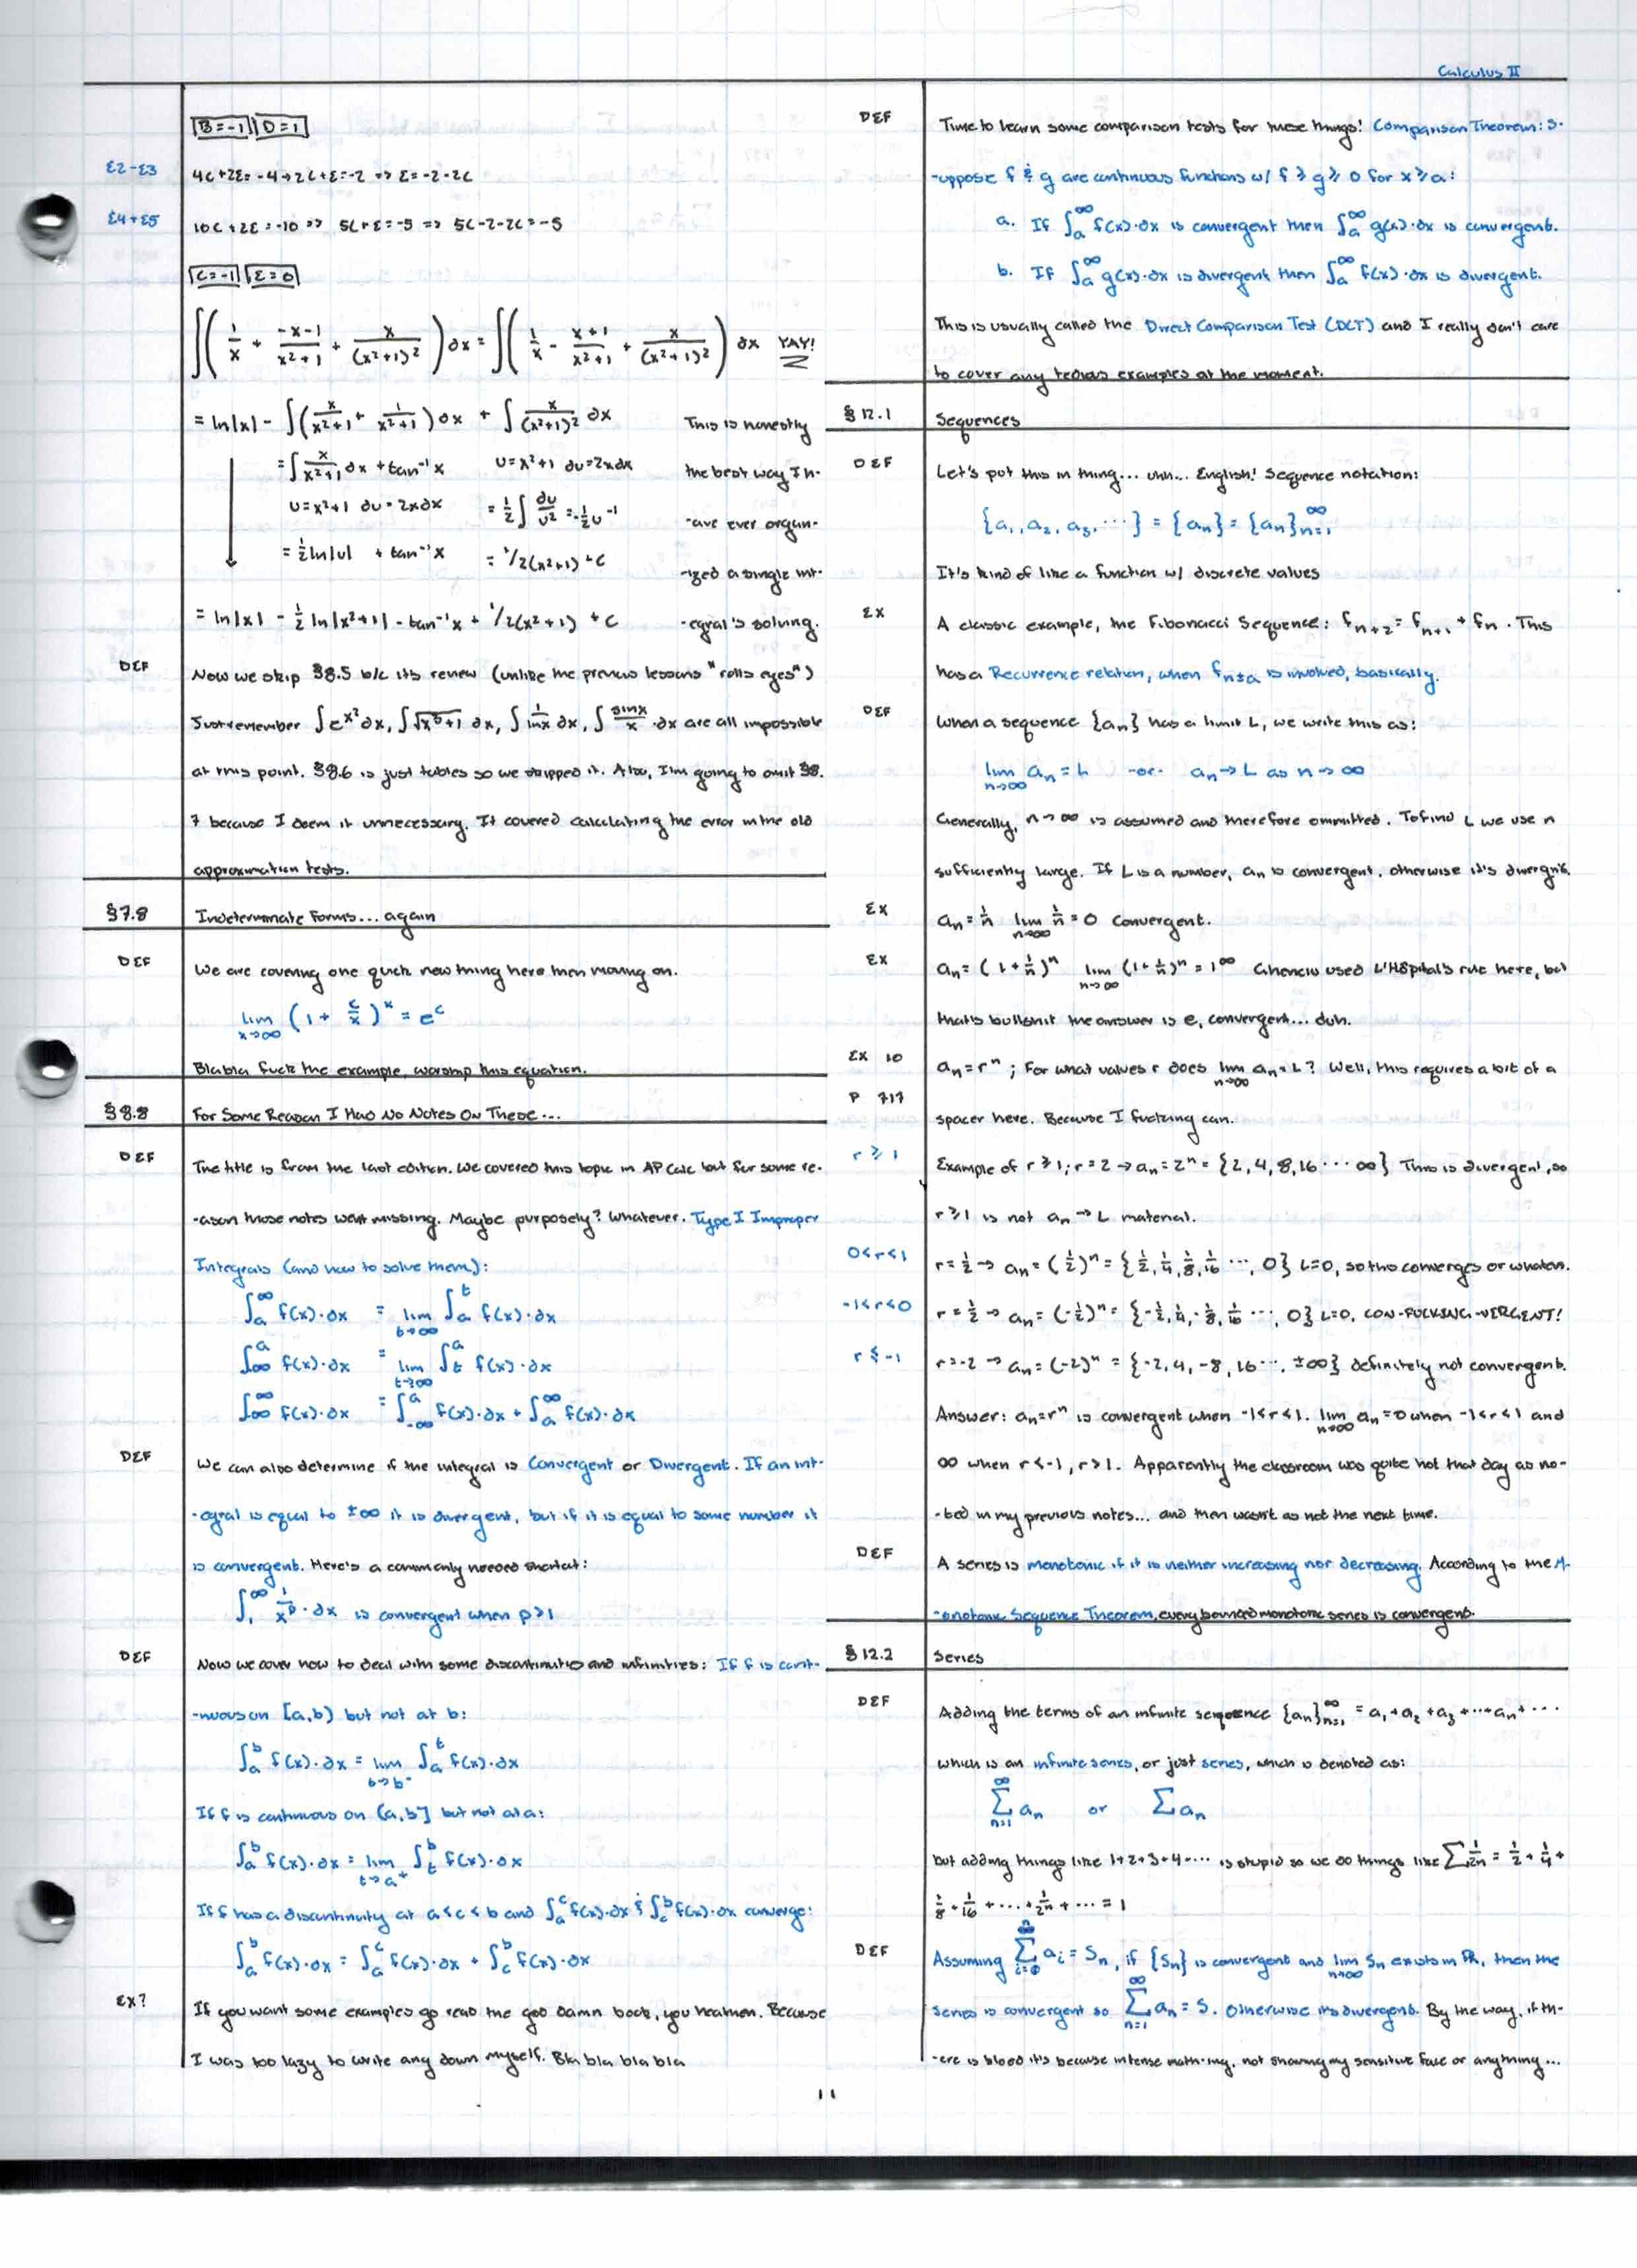 Calculus II
B=-1 D=1
E2-E3 4C+2E=-4 → 2C+E=-2 => E=-2-2C
E4+E5 10C+2E=-10 => 5C+E=-5 => 5C-2-2C=-5
C=-1 E=0
∫(1/x + (-x-1)/(x²+1) + x/(x²+1)²)∂x = ∫(1/x - (x+1)/(x²+1) + x/(x²+1)²)∂x YAY!
= ln|x| - ∫(x/(x²+1) + 1/(x²+1))∂x + ∫ x/(x²+1)² ∂x This is honestly
= ∫ x/(x²+1) ∂x + tan⁻¹x U=x²+1 ∂u=2x∂x the best way I h-
U=x²+1 ∂u=2x∂x = 1/2 ∫ ∂u/u² = -1/2 u⁻¹ -ave ever organ-
= 1/2 ln|u| + tan⁻¹x = 1/2(x²+1) + C -ized a single int-
= ln|x| - 1/2 ln|x²+1| - tan⁻¹x + 1/2(x²+1) + C -egral's solving.
DEF Now we skip §8.5 b/c its review (unlike the previous lessons "rolls eyes")
Just remember ∫e^x² ∂x, ∫√(x³+1) ∂x, ∫ 1/lnx ∂x, ∫ sinx/x · ∂x are all impossible
at this point. §8.6 is just tables so we skipped it. Also, I'm going to omit §8.
7 because I deem it unnecessary. It covered calculating the error in the old
approximation tests.
§7.8 Indeterminate Forms... again
DEF We are covering one quick new thing here then moving on.
lim x→∞ (1 + c/x)^x = e^c
Blabla fuck the example, worship this equation.
§8.8 For Some Reason I Had No Notes On These...
DEF The title is from the last edition. We covered this topic in AP Calc but for some re-
-ason those notes went missing. Maybe purposely? Whatever. Type I Improper
Integrals (and how to solve them):
∫a^∞ f(x)·∂x = lim b→∞ ∫a^t f(x)·∂x
∫∞^a f(x)·∂x = lim t→∞ ∫t^a f(x)·∂x
∫∞^∞ f(x)·∂x = ∫-∞^a f(x)·∂x + ∫a^∞ f(x)·∂x
DEF We can also determine if the integral is Convergent or Divergent. If an int-
-egral is equal to ±∞ it is divergent, but if it is equal to some number it
is convergent. Here's a commonly needed shortcut:
∫1^∞ 1/x^p · ∂x is convergent when p>1
DEF Now we cover how to deal with some discontinuities and infinities: If f is cont-
-nuous on [a,b) but not at b:
∫a^b f(x)·∂x = lim b→b⁻ ∫a^t f(x)·∂x
If f is continuous on (a,b] but not at a:
∫a^b f(x)·∂x = lim t→a⁺ ∫t^b f(x)·∂x
If f has a discontinuity at a<c<b and ∫a^c f(x)·∂x & ∫c^b f(x)·∂x converge:
∫a^b f(x)·∂x = ∫a^c f(x)·∂x + ∫c^b f(x)·∂x
EX? If you want some examples go read the god damn book, you heathen. Because
I was too lazy to write any down myself. Bla bla bla bla
DEF Time to learn some comparison tests for these things! Comparison Theorem: S-
-uppose f & g are continuous functions w/ f ≥ g ≥ 0 for x ≥ a:
a. If ∫a^∞ f(x)·∂x is convergent then ∫a^∞ g(x)·∂x is convergent.
b. If ∫a^∞ g(x)·∂x is divergent then ∫a^∞ f(x)·∂x is divergent.
This is usually called the Direct Comparison Test (DCT) and I really don't care
to cover any tedious examples at the moment.
§12.1 Sequences
DEF Let's put this in thing... uhh... English! Sequence notation:
{a₁, a₂, a₃, ...} = {aₙ} = {aₙ}∞n=1
It's kind of like a function w/ discrete values
EX A classic example, the Fibonacci Sequence: fₙ₊₂ = fₙ₊₁ + fₙ. This
has a Recurrence relation, when fn±a is involved, basically.
DEF When a sequence {aₙ} has a limit L, we write this as:
lim n→∞ aₙ = L -or- aₙ → L as n → ∞
Generally, n→∞ is assumed and therefore ommitted. To find L we use n
sufficiently large. If L is a number, an is convergent, otherwise it's divergnt.
EX aₙ = 1/n lim n→∞ 1/n = 0 Convergent.
EX aₙ = (1+1/n)ⁿ lim n→∞ (1+1/n)ⁿ = 1^∞ used L'Hôpital's rule here, but
that's bullshit the answer is e, convergent... duh.
EX 10 aₙ = rⁿ ; For what values r does lim n→∞ aₙ = L? Well, this requires a bit of a
P 717 spacer here. Because I fucking can.
r ≥ 1 Example of r ≥ 1; r = 2 → aₙ = 2ⁿ = {2, 4, 8, 16 ... ∞} This is divergent, so
r ≥ 1 is not aₙ → L material.
0<r<1 r = 1/2 → aₙ = (1/2)ⁿ = {1/2, 1/4, 1/8, 1/16 ..., 0} L=0, so this converges or whatev.
-1<r<0 r = 1/2 → aₙ = (-1/2)ⁿ = {-1/2, 1/4, -1/8, 1/16 ..., 0} L=0, CON-FUCKING-VERGENT!
r ≤ -1 r=-2 → aₙ = (-2)ⁿ = {-2, 4, -8, 16 ..., ±∞} definitely not convergent.
Answer: aₙ=rⁿ is convergent when -1<r<1. lim n→∞ aₙ = 0 when -1<r<1 and
∞ when r<-1, r>1. Apparently the classroom was quite hot that day as no-
-ted in my previous notes... and then wasn't as hot the next time.
DEF A series is monotonic if it is neither increasing nor decreasing. According to the M-
-onotonic Sequence Theorem, every bounded monotonic series is convergent.
§12.2 Series
DEF Adding the terms of an infinite sequence {aₙ}∞n=1 = a₁ + a₂ + a₃ + ... + aₙ + ...
which is an infinite series, or just series, which is denoted as:
∞Σn=1 aₙ or Σaₙ
but adding things like 1+2+3+4... is stupid so we do things like Σ 1/2n = 1/2 + 1/4 +
1/8 + 1/16 + ... + 1/2ⁿ + ... = 1
DEF Assuming Σ aᵢ = Sₙ, if {Sₙ} is convergent and lim n→∞ Sₙ exists in ℝ, then the
series is convergent so ∞Σn=1 aₙ = S. Otherwise its divergent. By the way, if th-
-ere is blood it's because intense math-ing, not shaving my sensitive face or anything...
11